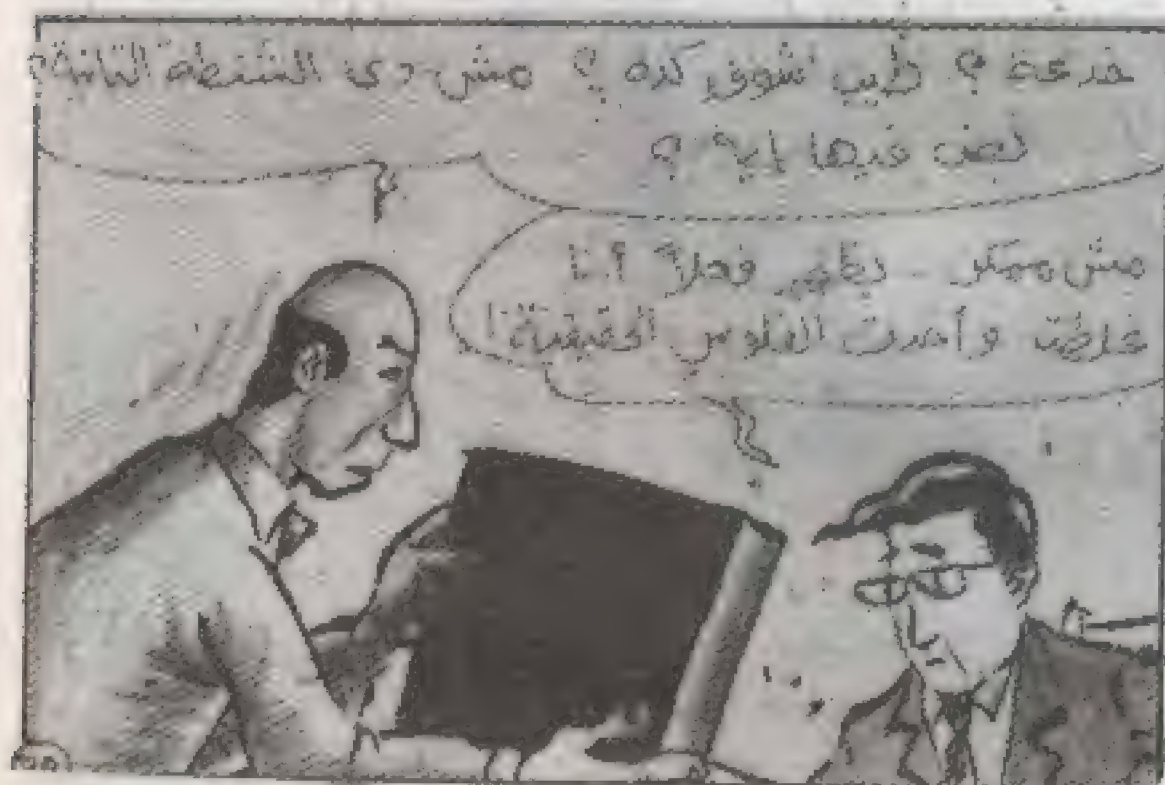 خدعة ؟ طيب شوف كده ؟ مش دى الشنطة التانية ؟
بص فيها ايه ؟
مش ممكن .. يظهر فعلاً أنا
غلطت وأخدت الفلوس الحقيقية !